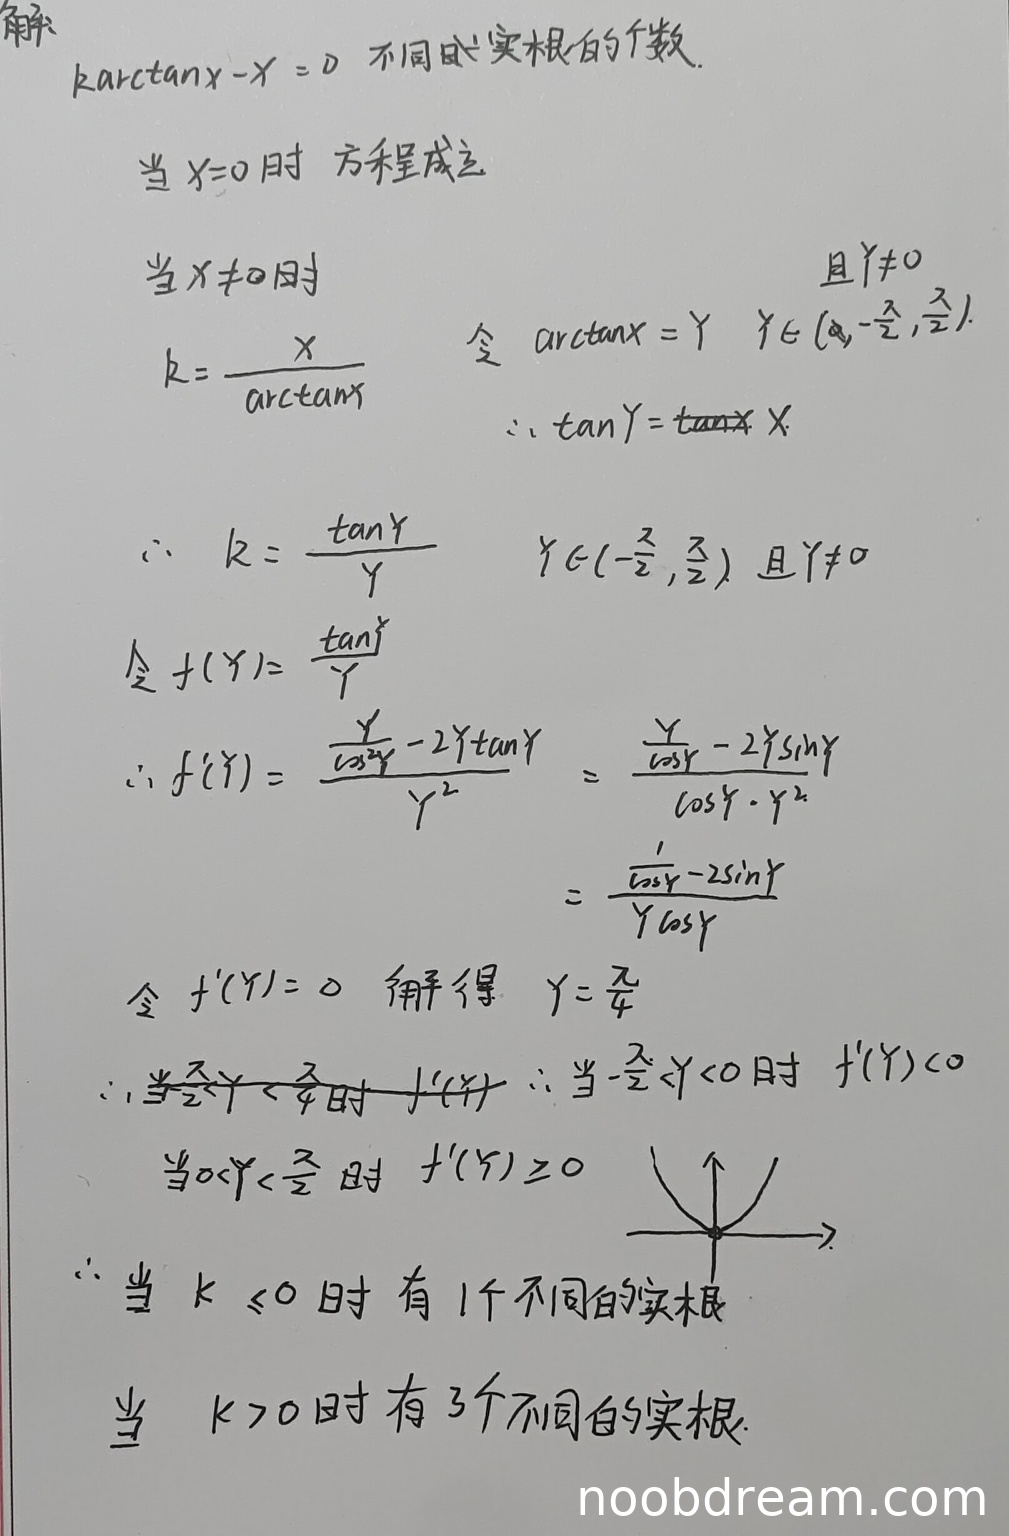 解:
karctanx-x=0 不同的实根的个数.
当 x=0时 方程成立
当x≠0时
且Y≠0
k= x/arctanx 令 arctanx = Y Y∈(-π/2, π/2).
∴ tanY = tanx X.
∴ k = tanY/Y Y∈(-π/2, π/2) 且Y≠0
令 f(Y)= tanY/Y
∴ f'(Y) = (Y/cos²Y - 2YtanY)/Y² = (Y/cosY - 2YsinY)/(cosY·Y²)
= (1/cosY - 2sinY)/(YcosY)
令 f'(Y)=0 解得 Y=π/4
∴ 当-π/2<Y<π/4时 f'(Y) ∴ 当-π/2<Y<0时 f'(Y)<0
当0<Y<π/2 时 f'(Y)≥0
∴ 当 k ≤0 时 有 1个不同的实根
当 k>0时有3个不同的实根.
noobdream.com